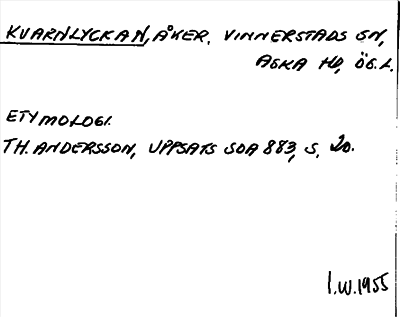 KVARNLYCKAN, ÅKER. VINNERSTADS SN,
ASKA HD, ÖG.L.
ETYMOLOGI.
TH. ANDERSSON, UPPSATS SOA 883, S. 20.
I.W. 1955